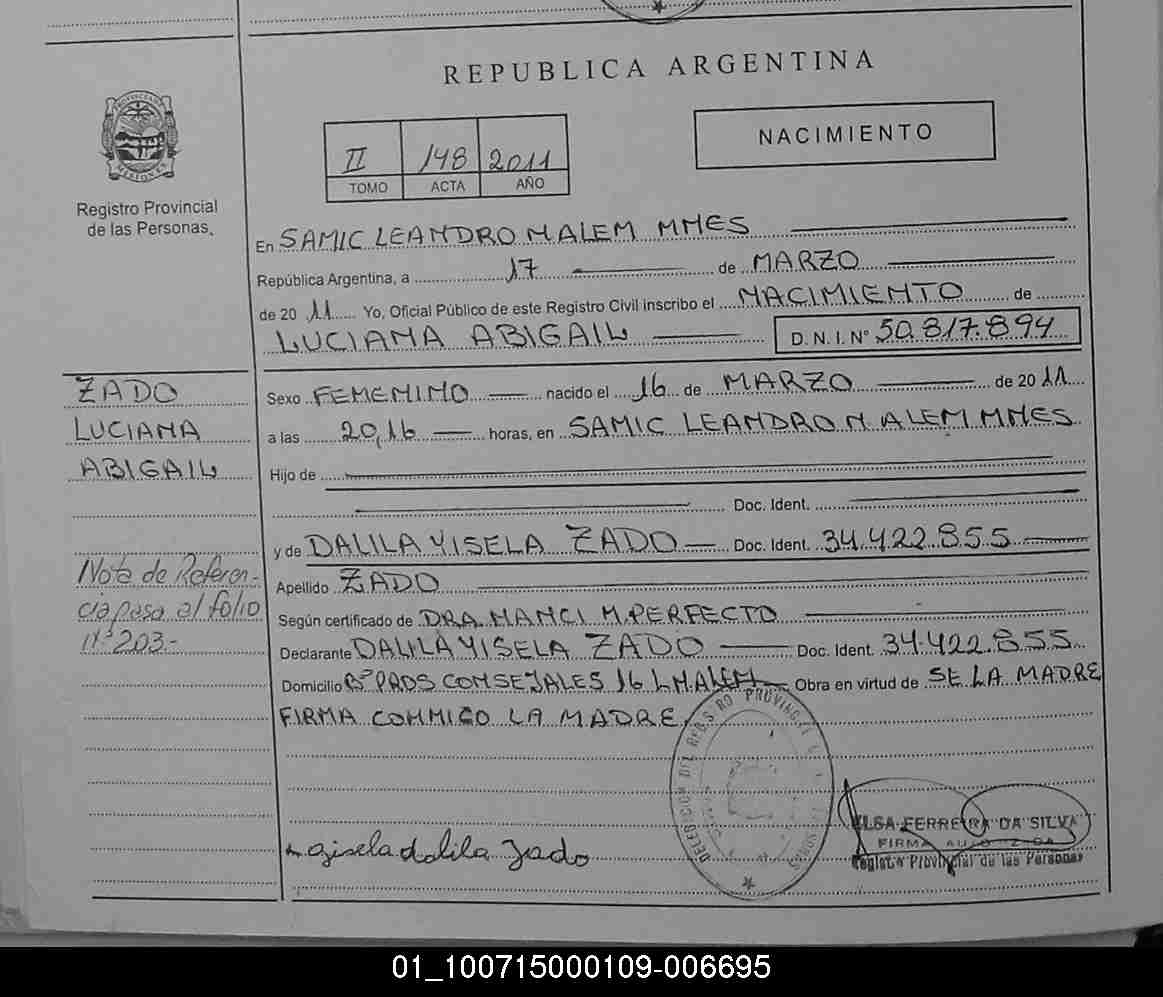 REPUBLICA ARGENTINA
PROVINCIA DE
MISIONES
Registro Provincial
de las Personas.
II 148 2011
TOMO ACTA AÑO
NACIMIENTO
En SAMIC LEANDRO N. ALEM MNES
República Argentina, a 17 de MARZO
de 20 11 Yo, Oficial Público de este Registro Civil inscribo el NACIMIENTO de
LUCIANA ABIGAIL D. N. I. N° 50.817.894
ZADO
LUCIANA
ABIGAIL
Sexo FEMENINO nacido el 16 de MARZO de 20 11
a las 20,16 horas, en SAMIC LEANDRO N. ALEM MNES
Hijo de
Doc. Ident.
y de DALILA YISELA ZADO Doc. Ident. 34.422.855
Apellido ZADO
Según certificado de DRA. NANCI M. PERFECTO
Declarante DALILA YISELA ZADO Doc. Ident. 34.422.855
Domicilio B° PRDS CONSEJALES 16 L.N.ALEM Obra en virtud de SE LA MADRE
FIRMA CONMIGO LA MADRE
Nota de Referen-
cia pasa al folio
N° 203-
gisela dalila Zado
ELSA FERREIRA DA SILVA
Registro Provincial de las Personas
01_100715000109-006695